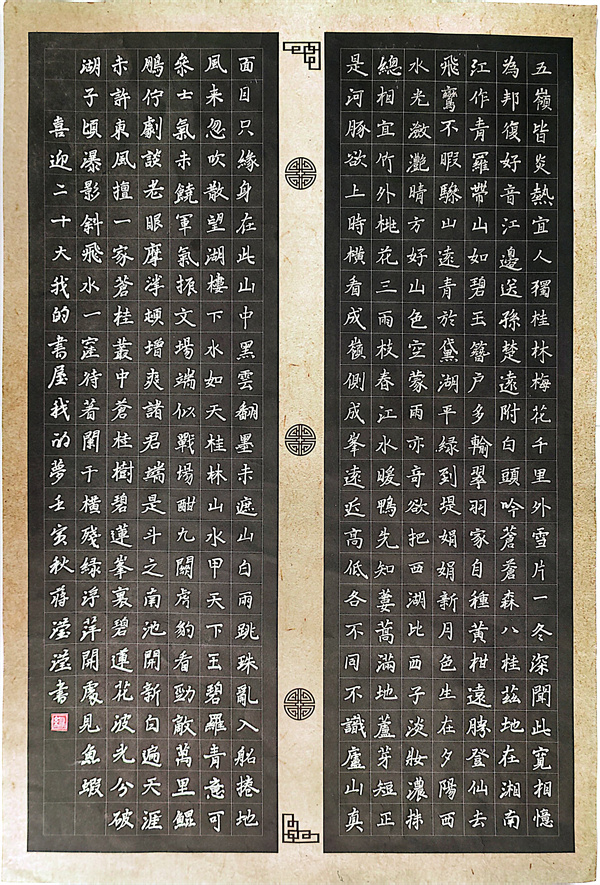 五嶺皆炎熱宜人獨桂林梅花千里外雪片一冬深聞此寬相憶
為邦復好音江邊送孫楚遠附白頭吟蒼蒼森八桂茲地在湘南
江作青羅帶山如碧玉簪戶多輸翠羽家自種黃柑遠勝登仙去
飛鸞不暇驂山遠青於黛湖平綠到堤娟娟新月色生在夕陽西
水光瀲灧晴方好山色空蒙雨亦奇欲把西湖比西子淡妝濃抹
總相宜竹外桃花三雨枝春江水暖鴨先知蔞蒿滿地蘆芽短正
是河豚欲上時橫看成嶺側成峯遠近高低各不同不識廬山真
面目只緣身在此山中黑雲翻墨未遮山白雨跳珠亂入船捲地
風來忽吹散望湖樓下水如天桂林山水甲天下玉碧羅青意可
叅士氣未饒軍氣振文場端似戰場酣九關虎豹看勁敵萬里鯤
鵬佇劇談老眼摩挲頓增爽諸君端是斗之南池開新白遍天涯
未許東風擅一家蒼桂叢中蒼桂樹碧蓮峯裏碧蓮花波光分破
湖子頃瀑影斜飛水一窪待著闌干橫殘綠浮萍開處見魚蝦
喜迎二十大我的書屋我的夢壬寅秋蔣瀅瀅書